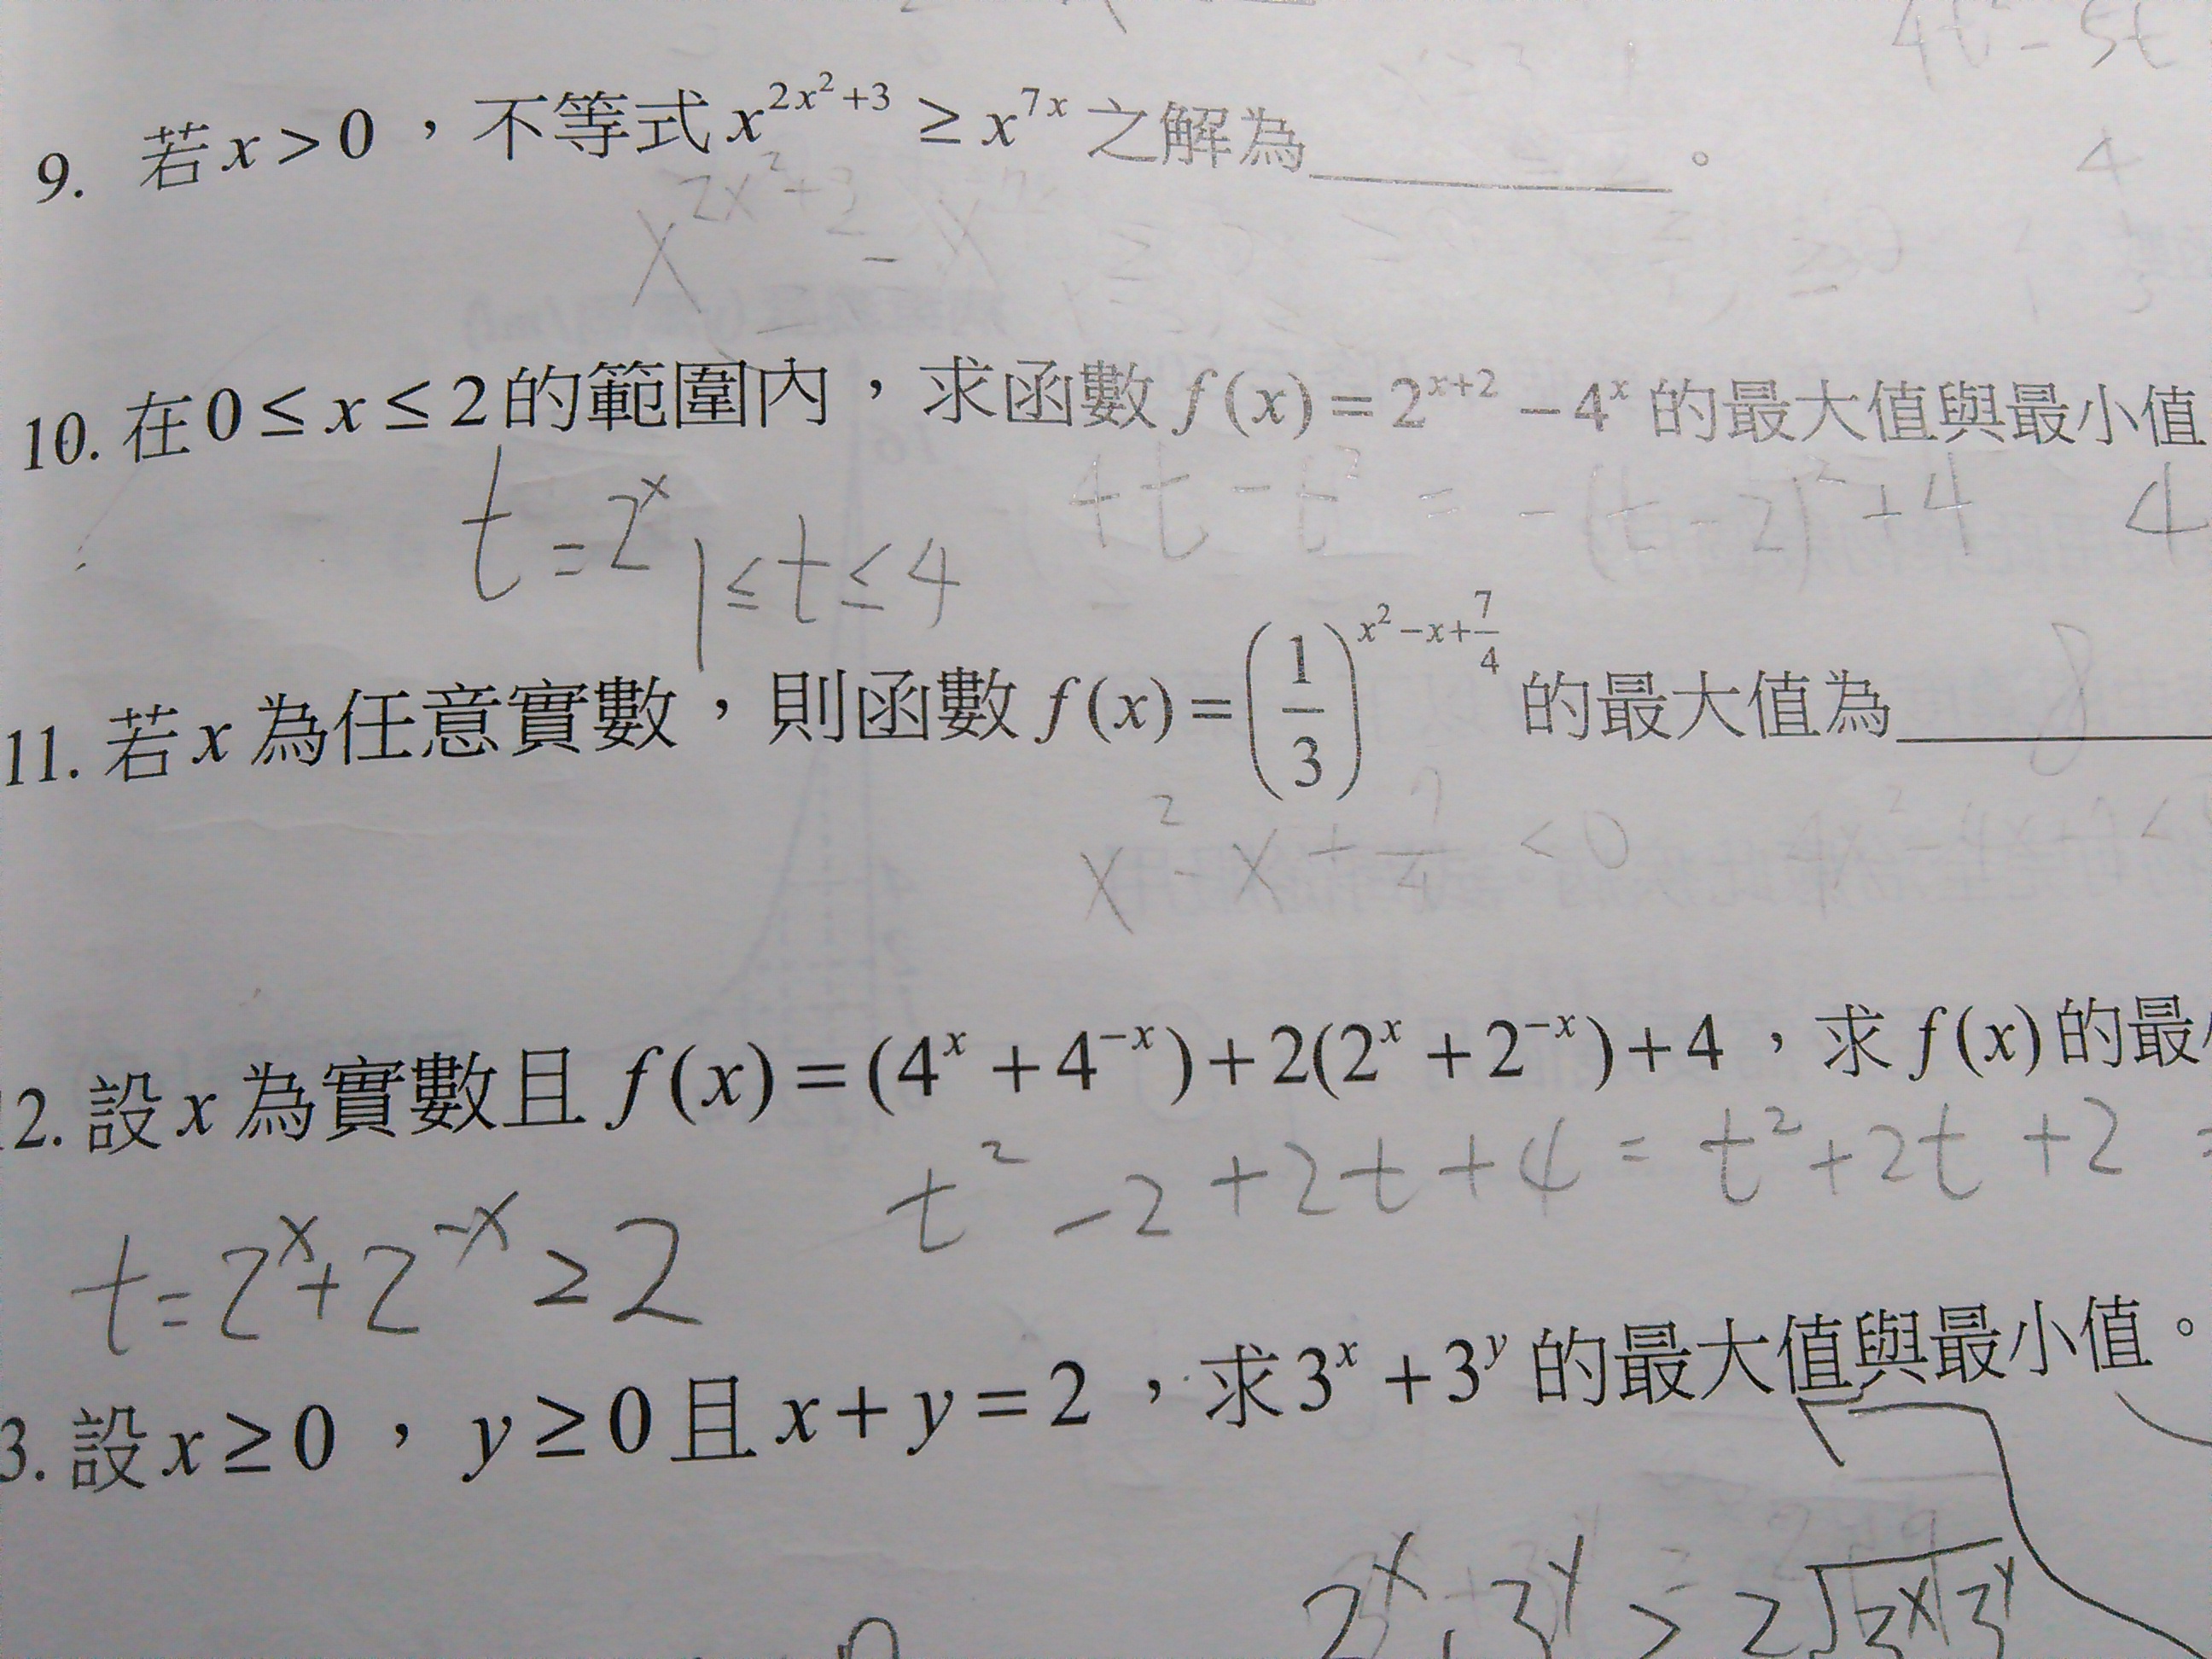 4t² - 5t
9. 若 x > 0 ，不等式 x^{2x²+3} ≥ x^{7x} 之解為________。
4
x^{2x²+3} - x
10. 在 0 ≤ x ≤ 2 的範圍內，求函數 f(x) = 2^{x+2} - 4^x 的最大值與最小值
t = 2^x 1 ≤ t ≤ 4 4t - t² = -(t-2)² + 4 4
11. 若 x 為任意實數，則函數 f(x) = (1/3)^{x²-x+7/4} 的最大值為________
8
x² - x + 7/4 < 0
2. 設 x 為實數且 f(x) = (4^x + 4^{-x}) + 2(2^x + 2^{-x}) + 4 ，求 f(x) 的最
t² - 2 + 2t + 4 = t² + 2t + 2 =
t = 2^x + 2^{-x} ≥ 2
3. 設 x ≥ 0 ， y ≥ 0 且 x + y = 2 ，求 3^x + 3^y 的最大值與最小值。
3^y ≥ 2√(3^x 3^y)